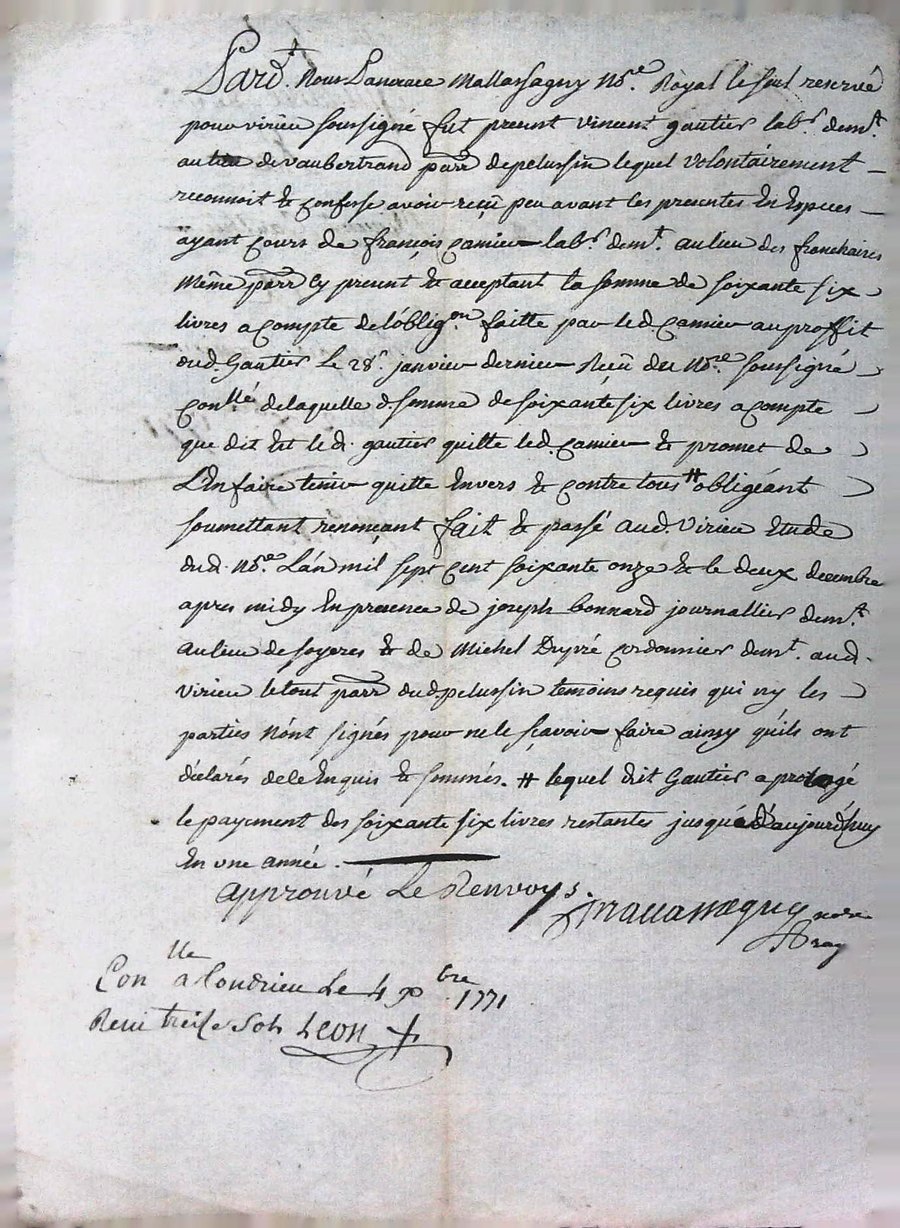 Pard.t Nous Mallassagny No.re Royal le seul reservé
pour virieu soussigné fut present vincent gautier lab.r dem.t
au lieu de vaubertrand parr de pelussin lequel volontairement
reconnoit & confesse avoir reçü peu avant les presentes En Especes
ayant cours de françois Camier lab.r dem.t au lieu des franchaires
même parr Cy present & acceptant la somme de soixante six
livres a compte de l'oblig.on faitte par led. Camier au proffit
dud. Gautier Le 28.e janvier dernier Reçü du No.re soussigné
Con.llé de laquelle d. somme de soixante six livres a compte
que dit Est led. gautier quitte led. Camier & promet de
L'En faire tenir quitte Envers & contre tous # obligéant
soumettant renonçant fait & passé aud. Virieu Etude
dud. No.re L'an mil sept Cent soixante onze & le deux decembre
apres midy En presence de joseph bonnard journallier dem.t
au lieu de soyeres & de Michel Dupré Cordonnier dem.t aud.
virieu le tout parr dud. pelussin temoins requis qui ny les
parties n'ont signés pour ne le sçavoir faire ainsy qu'ils ont
déclarés de ce Enquis & sommés. # lequel dit Gautier a prolongé
le payement des soixante six livres restantes jusqué d'aujourd'huy
En une année.
approuvé Le Renvoys.
Mallassagny no.re
roy
Con.lle a Condrieu Le 4 x.bre 1771
Reçu treize sols Leon